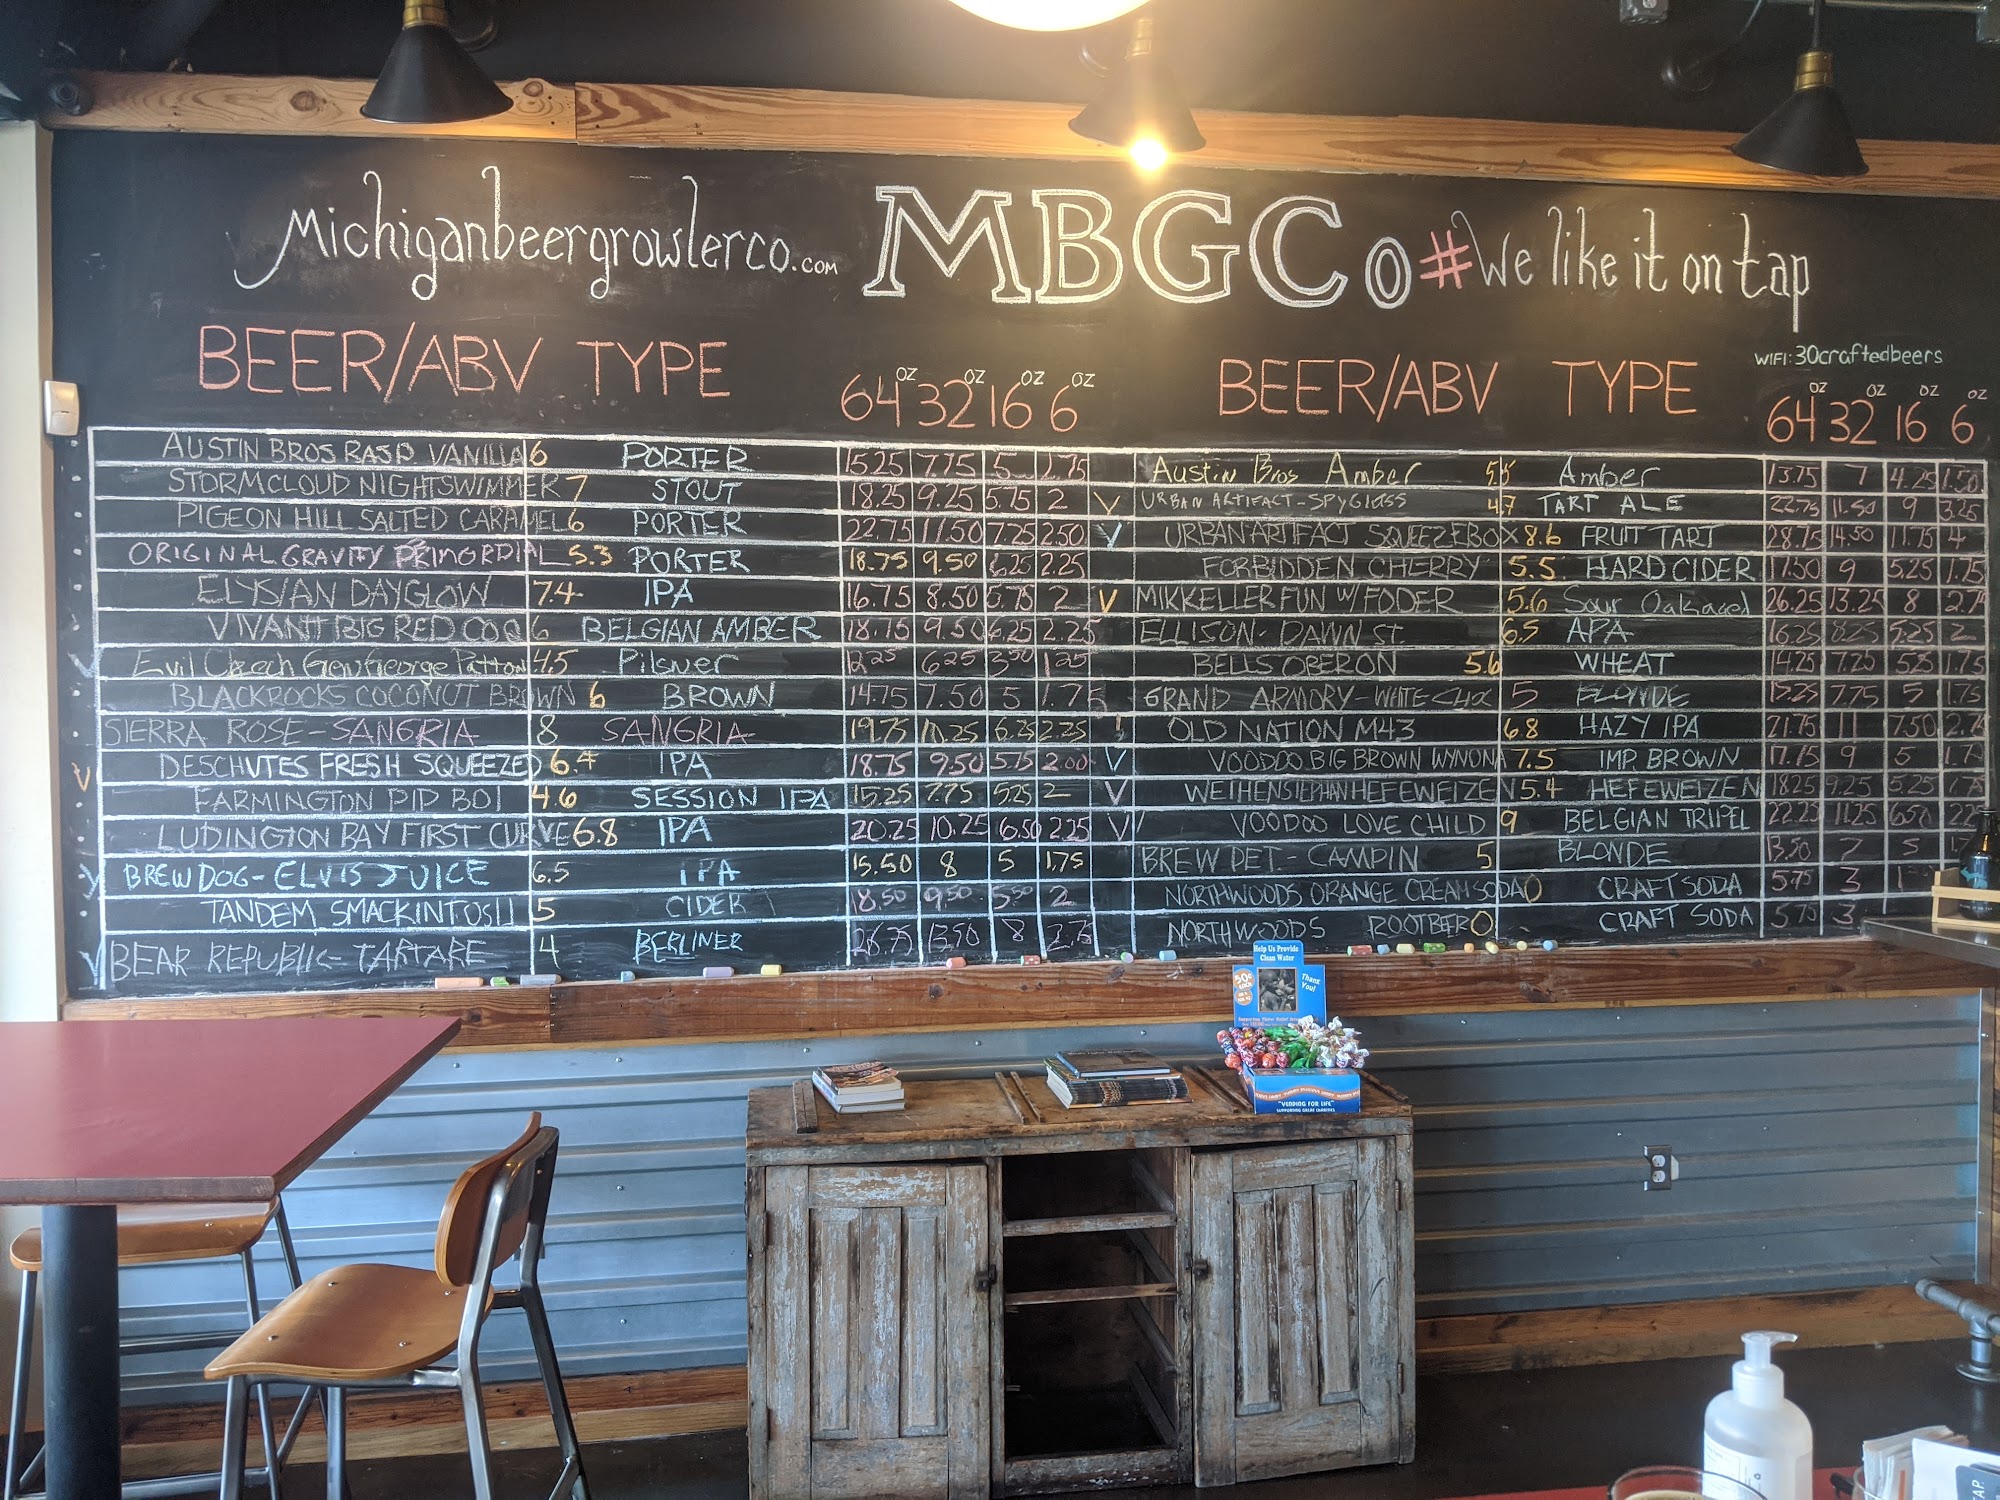 Michiganbeergrowlerco.com MBGCo #We like it on tap
BEER/ABV TYPE 64oz 32oz 16oz 6oz
AUSTIN BROS RASP VANILLA 6 PORTER 15.25 7.75 5 1.75
STORMCLOUD NIGHTSWIMMER 7 STOUT 18.25 9.25 5.75 2
PIGEON HILL SALTED CARAMEL 6 PORTER 22.75 11.50 7.25 2.50
ORIGINAL GRAVITY PRIMORDIAL 5.3 PORTER 18.75 9.50 6.25 2.25
ELYSIAN DAYGLOW 7.4 IPA 16.75 8.50 5.75 2
VIVANT BIG RED COQ 6 BELGIAN AMBER 18.75 9.50 6.25 2.25
Evil Czech Gen George Patton 4.5 Pilsner 12.25 6.25 3.50 1.25
BLACKROCKS COCONUT BROWN 6 BROWN 14.75 7.50 5 1.75
SIERRA ROSE-SANGRIA 8 SANGRIA 19.75 10.25 6.25 2.25
DESCHUTES FRESH SQUEEZED 6.4 IPA 18.75 9.50 5.75 2.00
FARMINGTON PIP BOI 4.6 SESSION IPA 15.25 7.75 5.25 2
LUDINGTON BAY FIRST CURVE 6.8 IPA 20.25 10.25 6.50 2.25
BREWDOG-ELVIS JUICE 6.5 IPA 15.50 8 5 1.75
TANDEM SMACKINTOSH 5 CIDER 18.50 9.50 5.50 2
BEAR REPUBLIC-TARTARE 4 BERLINER 26.75 13.50 8 2.75
WIFI: 30craftedbeers
BEER/ABV TYPE 64oz 32oz 16oz 6oz
Austin Bros Amber 5.5 Amber 13.75 7 4.25 1.50
URBAN ARTIFACT-SPYGLASS 4.7 TART ALE 22.75 11.50 9 3.25
URBAN ARTIFACT SQUEEZEBOX 8.6 FRUIT TART 28.75 14.50 11.75 4
FORBIDDEN CHERRY 5.5 HARD CIDER 17.50 9 5.25 1.75
MIKKELLER FUN W/FODER 5.6 Sour Oakaged 26.25 13.25 8 2.7
ELLISON-DAWN St. 6.5 APA 16.25 8.25 5.25 2
BELLS OBERON 5.6 WHEAT 14.25 7.25 5.25 1.75
GRAND ARMORY-WHITE 5 BLONDE 15.25 7.75 5 1.75
OLD NATION M43 6.8 HAZY IPA 21.75 11 7.50 2.7
VOODOO BIG BROWN WYNONA 7.5 IMP. BROWN 17.75 9 5 1.7
WEIHENSTEPHAN HEFEWEIZEN 5.4 HEFEWEIZEN 18.25 9.25 5.25 1.75
VOODOO LOVE CHILD 9 BELGIAN TRIPEL 22.25 11.25 6.50 2.2
BREW DET.-CAMPIN 5 BLONDE 13.50 7 5 1.7
NORTHWOODS ORANGE CREAM SODA 0 CRAFT SODA 5.75 3
NORTHWOODS ROOTBEER 0 CRAFT SODA 5.75 3
Help Us Provide
Clean Water
50¢
Thank
You!
"VENDING FOR LIFE"
SUPPORTING GREAT CHARITIES